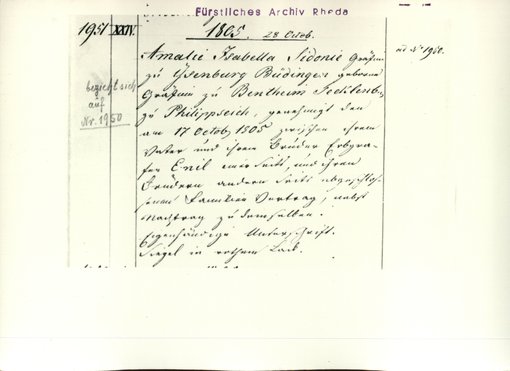 Fürstliches Archiv Rheda
1951 XXIV.
1805. 28 Octob.
Amalie Isabella Sidonie Gräfinn
zu Ysenburg Büdingen geborne
Gräfinn zu Bentheim Tecklenbg
zu Philippseich, genehmigt den
am 17 Octob. 1805 zwischen ihrem
Vater und ihrem Bruder Erbgra-
fen Emil einer Seits, und ihren
Brüdern andern Seits abgeschlos-
senen Familien Vertrag, nebst
Nachtrag zu demselben.
Eigenhändige Unterschrift.
Siegel in rothem Lack.
bezieht sich
auf
Nr. 1950
ad No 1950.